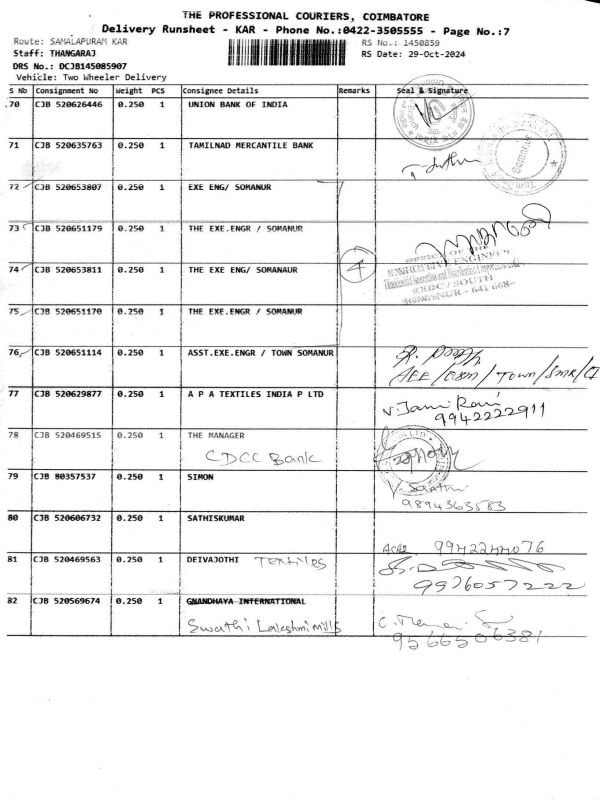 THE PROFESSIONAL COURIERS, COIMBATORE
Delivery Runsheet - KAR - Phone No.:0422-3505555 - Page No.:7
Route: SAMALAPURAM KAR
RS No.: 1450859
Staff: THANGARAJ
RS Date: 29-Oct-2024
DRS No.: DCJB145085907
Vehicle: Two Wheeler Delivery
S No Consignment No Weight PCS Consignee Details Remarks Seal & Signature
70 CJB 520626446 0.250 1 UNION BANK OF INDIA
71 CJB 520635763 0.250 1 TAMILNAD MERCANTILE BANK
Somanur
72 CJB 520653807 0.250 1 EXE ENG/ SOMANUR
73 CJB 520651179 0.250 1 THE EXE.ENGR / SOMANUR
OFFICE OF THE
74 CJB 520653811 0.250 1 THE EXE ENG/ SOMANAUR
4
/ SOUTH
75 CJB 520651170 0.250 1 THE EXE.ENGR / SOMANUR
76 CJB 520651114 0.250 1 ASST.EXE.ENGR / TOWN SOMANUR
AEE/O&M/Town/SMR/
77 CJB 520629877 0.250 1 A P A TEXTILES INDIA P LTD
V. Jami Rani
9942222911
78 CJB 520469515 0.250 1 THE MANAGER
CDCC Bank
79 CJB 80357537 0.250 1 SIMON
9894363583
80 CJB 520606732 0.250 1 SATHISKUMAR
9942244076
81 CJB 520469563 0.250 1 DEIVAJOTHI Textiles
9976057222
82 CJB 520569674 0.250 1 GNANDHAYA INTERNATIONAL
Swathi Lakshmi Mills
9566506381